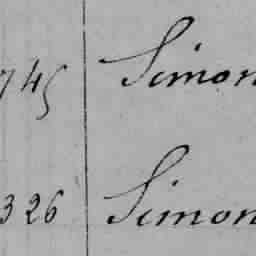 745 Simon
326 Simon